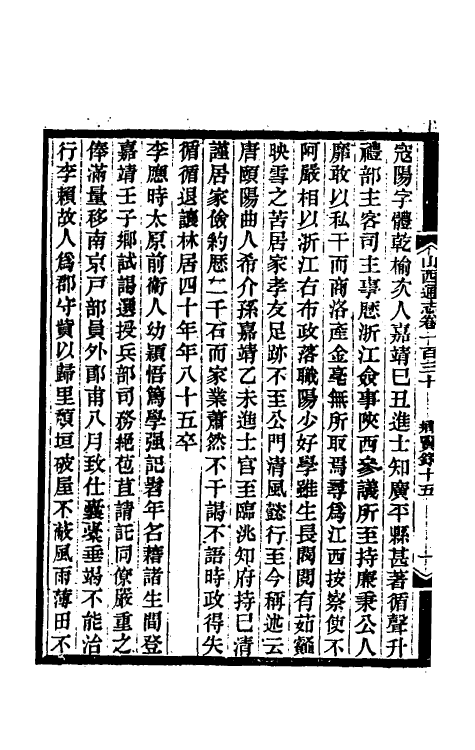 山西通志卷一百三十 鄉賢錄十五 一
寇陽字體乾榆次人嘉靖己丑進士知廣平縣甚著循聲升
禮部主客司主事歷浙江僉事陝西參議所至持廉秉公人
靡敢以私干而商洛產金毫無所取焉尋爲江西按察使不
阿嚴相以浙江右布政落職陽少好學雖生長閥閱有茹虀
映雪之苦居家孝友足跡不至公門清風懿行至今稱述云
唐頤陽曲人希介孫嘉靖乙未進士官至臨洮知府持己清
謹居家儉約歷二千石而家業蕭然不干謁不語時政得失
循循退讓林居四十年年八十五卒
李應時太原前衛人幼穎悟篤學强記髫年名藉諸生間登
嘉靖壬子鄉試謁選授兵部司務絕苞苴請託同僚嚴重之
俸滿量移南京戶部員外郎甫八月致仕囊橐垂竭不能治
行李賴故人爲郡守貲以歸里頹垣破屋不蔽風雨薄田不